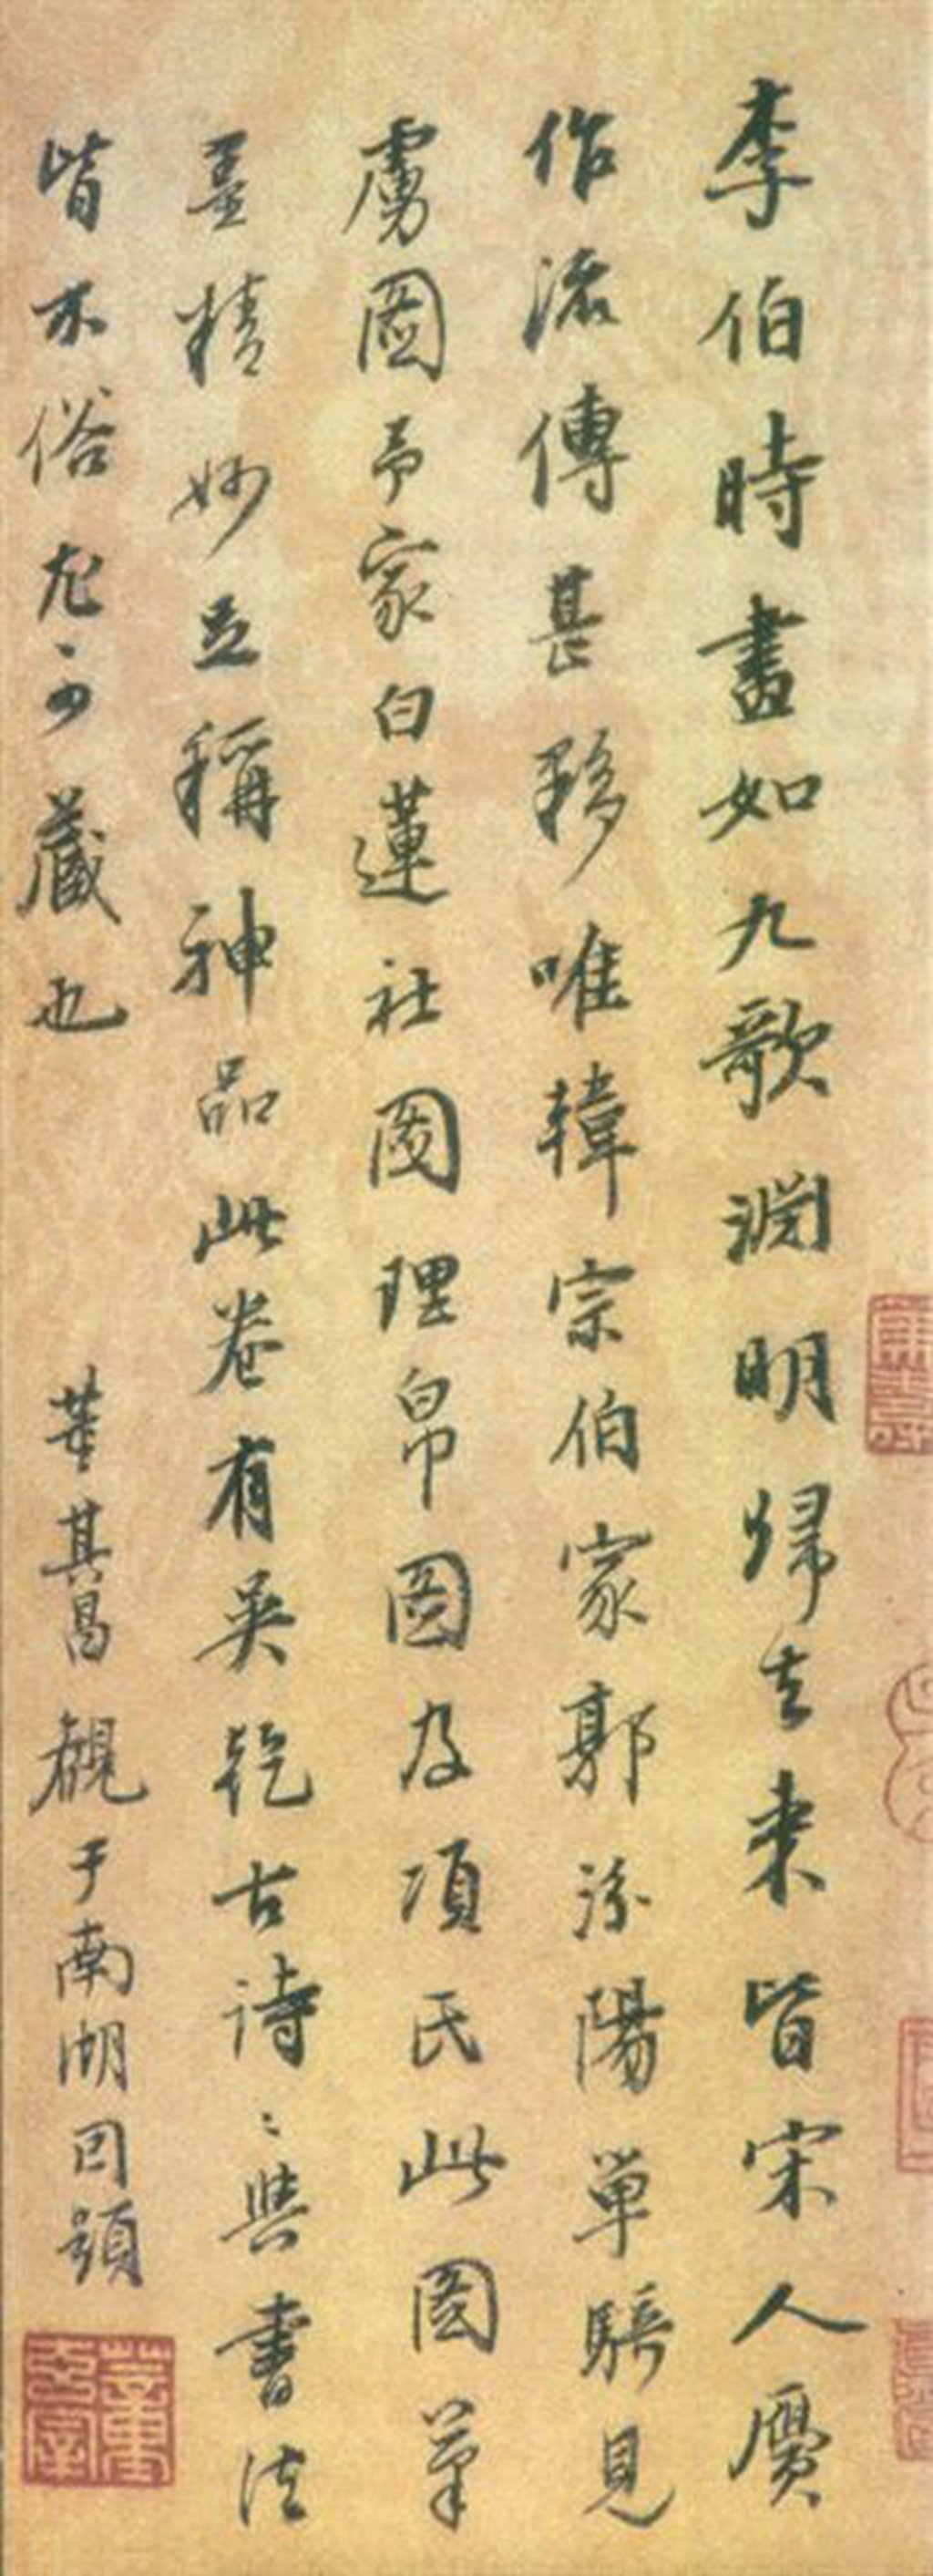 李伯時畫如九歌淵明歸去来皆宋人贋
作流傳甚夥唯韓宗伯家郭汾陽單騎見
虜圖予家白蓮社圖理帛圖及項氏此圖筆
墨精妙並稱神品此卷有吳乾古詩々與書法
皆不俗尤可藏也
董其昌觀于南湖因題